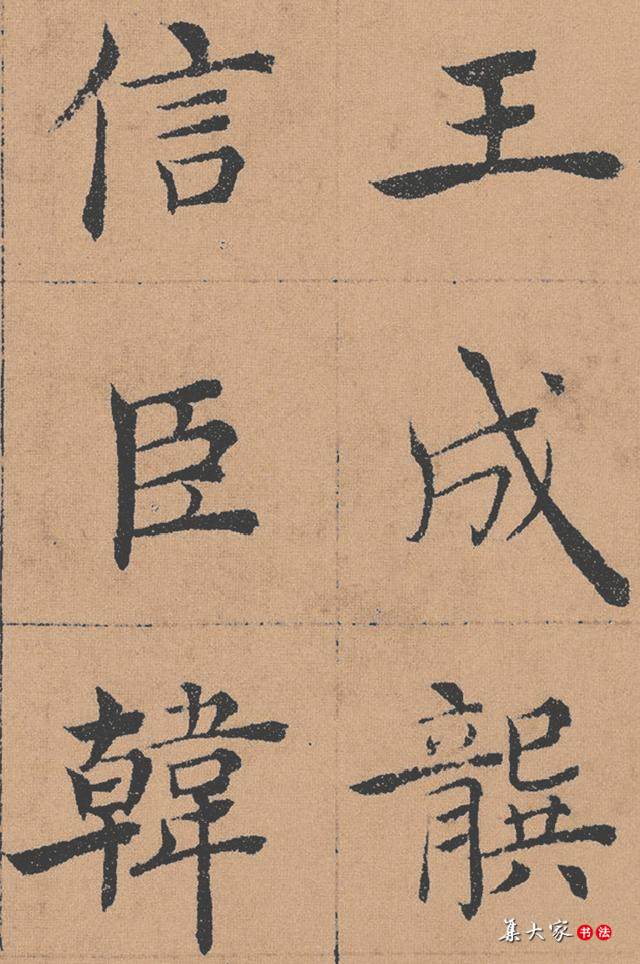 王成龔
信臣韓
集大家 书法